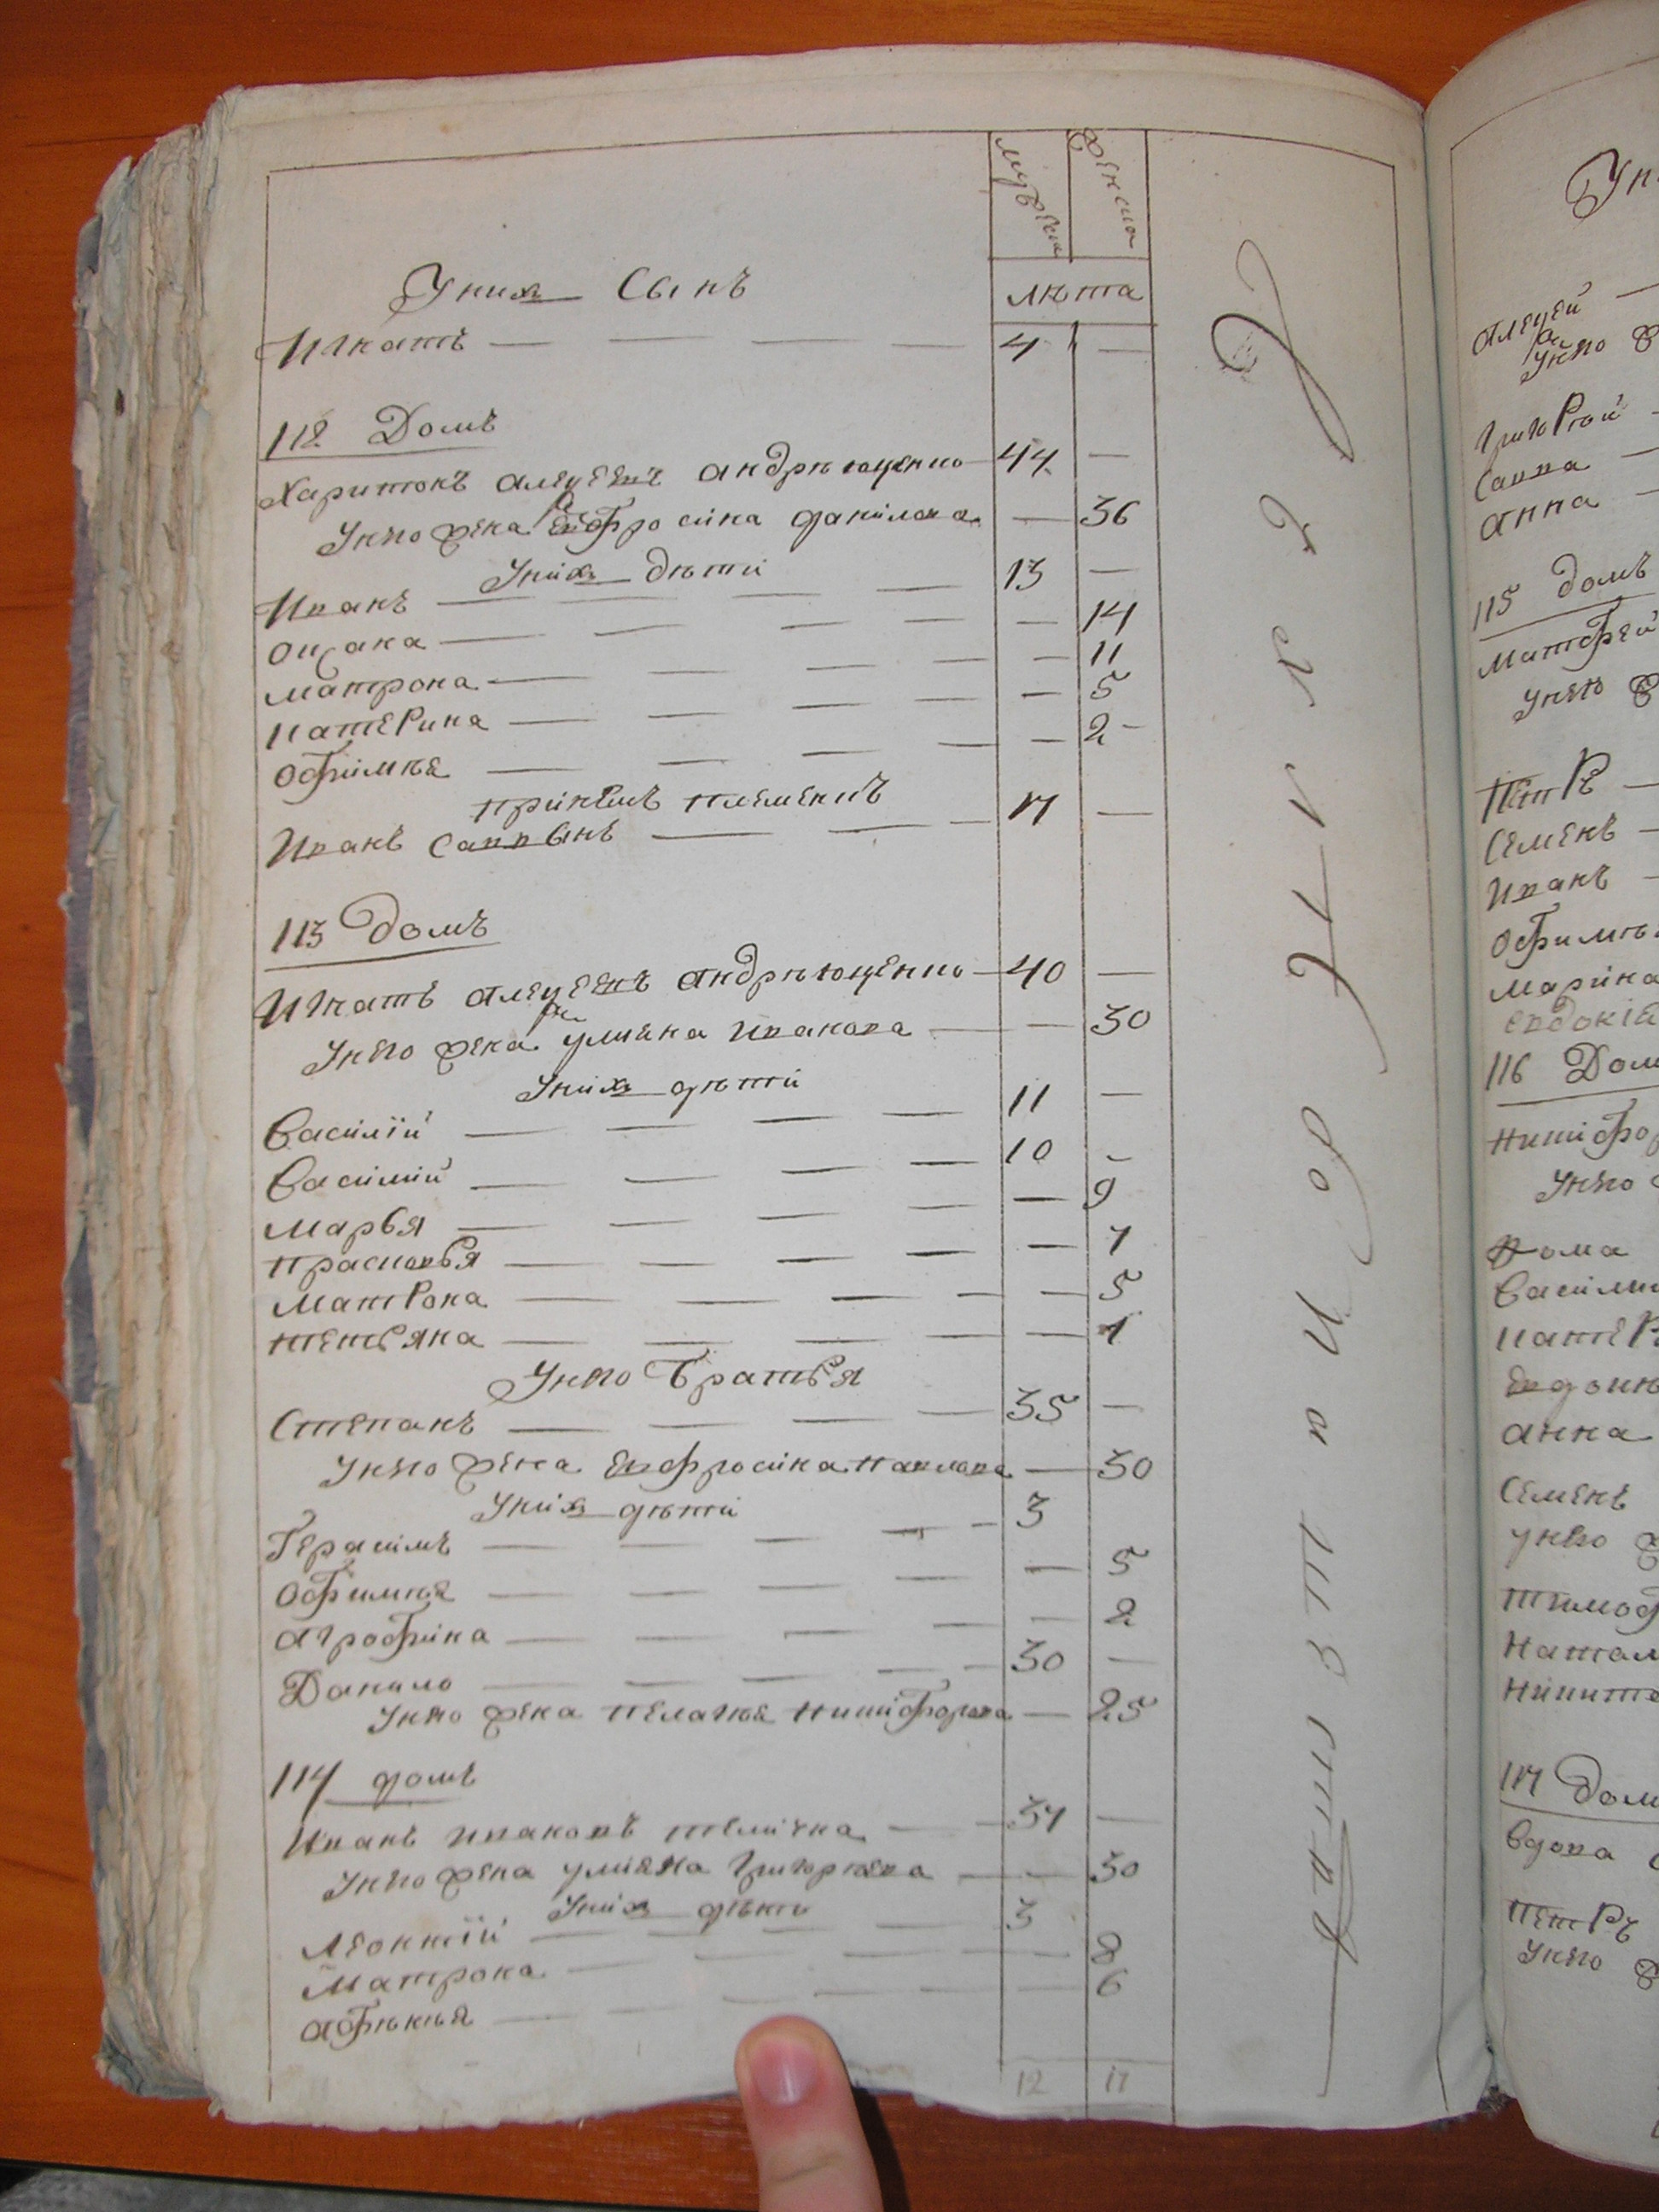 мужеска женска
лѣта
Уних Сынъ
Игнатъ — — — — 4 —
112 Домъ
Харитонъ алеѯеевъ андрѣющенко — 44 —
Унего жена Евфросина данилова — 36
Уних дѣти
Иванъ — — — — 13 —
оѯана — — — — — 14
матрона — — — — — 11
катерина — — — — — 5
офимѣя — — — — — 2 —
приемъ племенікъ
Иванъ саввынъ — — — 17 —
113 домъ
Игнатъ алеѯеевъ андрѣющенко — 40 —
Унего жена улияна иванова — — 30
Уних дѣти
Василій — — — — 11 —
Василий — — — — 10 —
марья — — — — — 9
прасковья — — — — — 7
матрона — — — — — 5
тетьяна — — — — — 1
Унего братья
Степанъ — — — — 35 —
Унего жена евфросина павлова — 30
Уних дѣти
Герасимъ — — — — 3
офимия — — — — — 5
агрофина — — — — — 2
Данило — — — — 30 —
Унего жена пелагѣя никифорова — 25
114 домъ
Иванъ ивановъ теличка — — 37 —
Унего жена улияна григорѣева — — 30
Уних дѣти
Леонтій — — — — 3
Матрона — — — — — 8
афѣнья — — — — — 6
12 17
алеѯей —
Унего
григорей
савва —
анна —
115 домъ
матфей
Унего
петръ —
Семенъ —
Иванъ —
офимѣ
марина
евдокія
116 Дом
никифо
Унего
фома
Васили
катер
анна
Семенъ
унего
тимоф
натал
никит
117 Дом
вдова
петръ
Унего